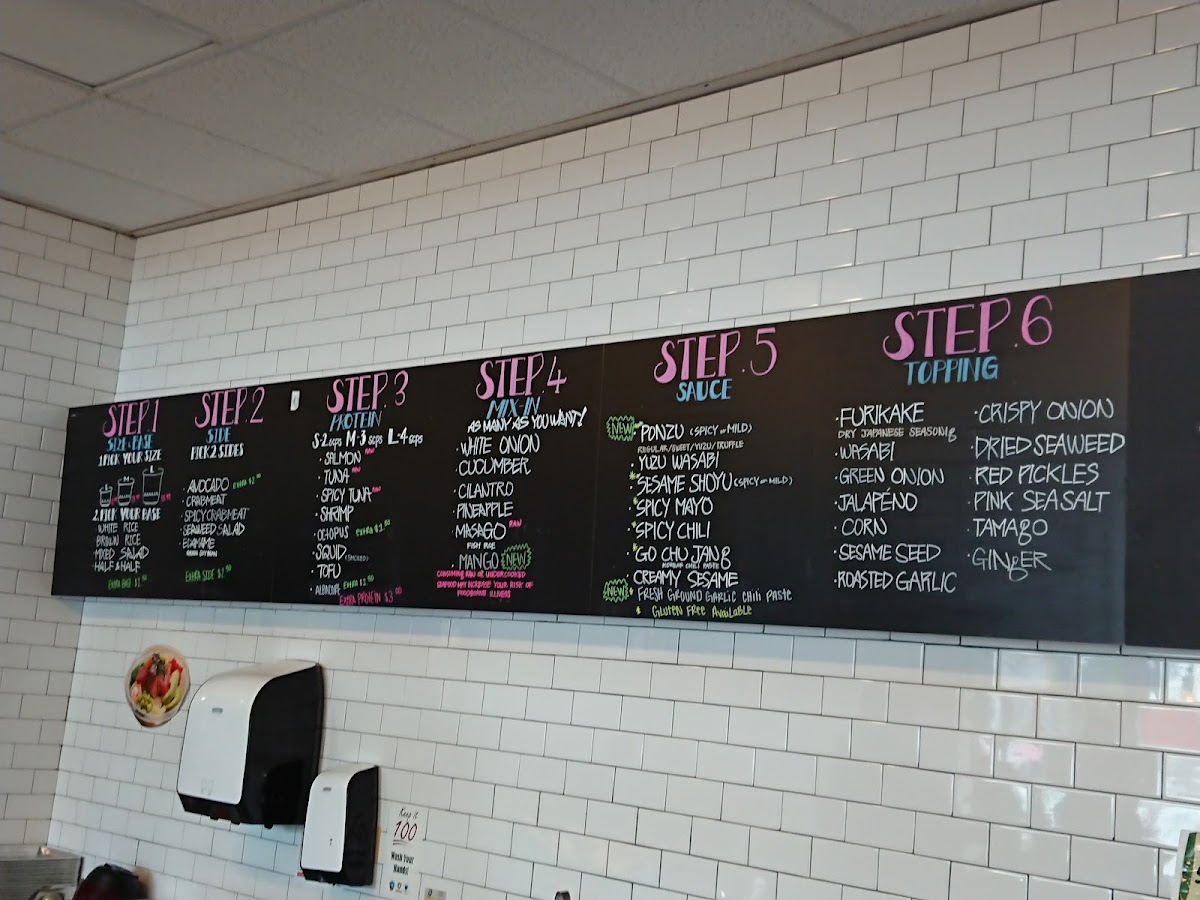 STEP.1
SIZE & BASE
1.PICK YOUR SIZE
2.PICK YOUR BASE
WHITE RICE
BROWN RICE
MIXED SALAD
HALF & HALF
STEP.2
SIDE
PICK 2 SIDES
· AVOCADO
· CRABMEAT
· SPICY CRABMEAT
· SEAWEED SALAD
· EDAMAME
STEP.3
PROTEIN
S-2scps M-3 scps L-4 scps
· SALMON RAW
· TUNA RAW
· SPICY TUNA RAW
· SHRIMP
· OCTOPUS EXTRA $1.50
· SQUID (SMOKED)
· TOFU
· ALBACORE
EXTRA PROTEIN $3.00
STEP.4
MIX-IN
AS MANY AS YOU WANT!
· WHITE ONION
· CUCUMBER
· CILANTRO
· PINEAPPLE
· MASAGO RAW
FISH ROE
· MANGO NEW
CONSUMING RAW OR UNDERCOOKED
SEAFOOD MAY INCREASE YOUR RISK OF
FOODBORNE ILLNESS
STEP.5
SAUCE
NEW · PONZU (SPICY OR MILD)
REGULAR/SWEET/YUZU/TRUFFLE
· YUZU WASABI
* SESAME SHOYU (SPICY OR MILD)
* SPICY MAYO
* SPICY CHILI
* GO CHU JANG
KOREAN CHILI PASTE
CREAMY SESAME
NEW * FRESH GROUND GARLIC CHILI PASTE
* GLUTEN FREE AVAILABLE
STEP.6
TOPPING
· FURIKAKE
DRY JAPANESE SEASONIG
· WASABI
· GREEN ONION
· JALAPÉNO
· CORN
· SESAME SEED
· ROASTED GARLIC
· CRISPY ONION
· DRIED SEAWEED
· RED PICKLES
· PINK SEA SALT
· TAMAGO
· GINGER
Keep it
100
Wash Your
Hands!